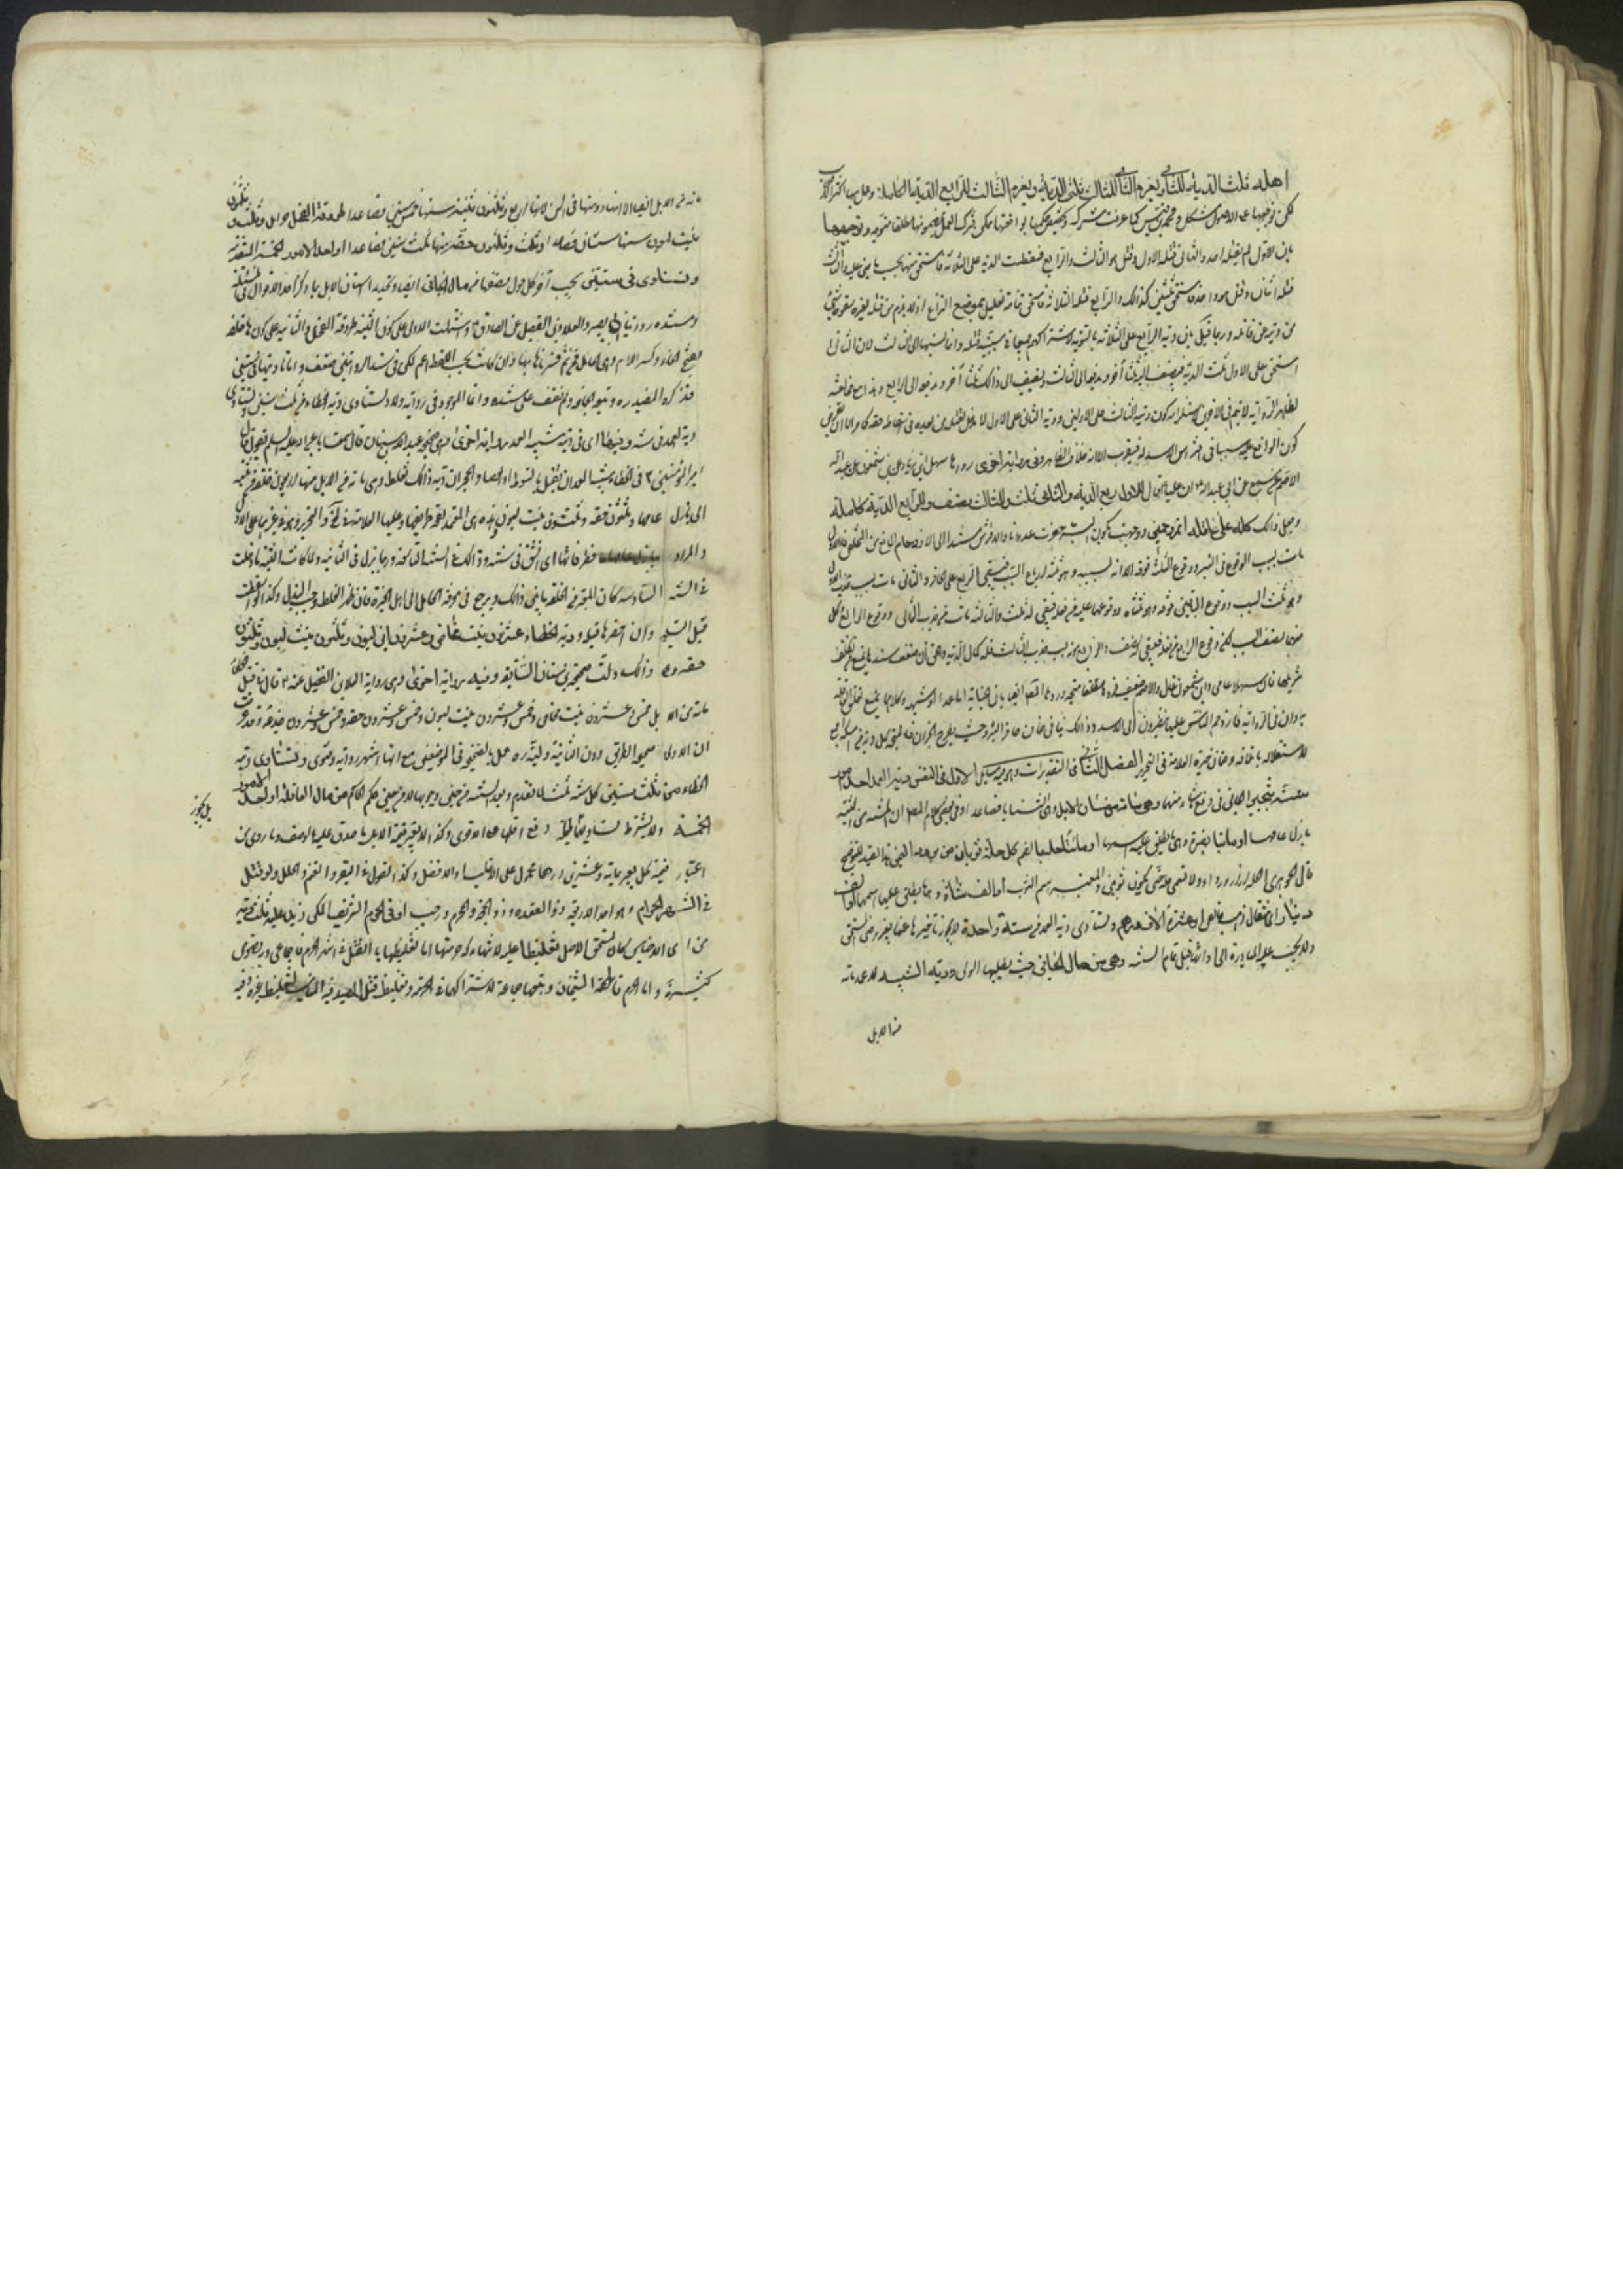 اهله ثلث الدية للثاني ويغرم الثاني للثالث ثلثي الدية ويغرم الثالث للرابع الدية الكاملة وعمل بها اكثر الاصحاب
لكن توجيهها على الاصول مشكل ومحمد بن قيس كما عرفت مشترك
بان الاول لم يقتله احد والثاني قتله الاول وقتل هو الثالث والرابع فقسطت الدية على الثلاثة فاستحق منها بحسب ما جني عليه والثالث
قتله اثنان وقتل هو واحدا فاستحق ثلثين كذلك والرابع قتله الثلاثة فاستحق تمام الدية
من دية من قتله وربما قيل بان دية الرابع على الثلاثة بالسوية لاشتراكهم جميعا في سببية قتله وانما نسبها الى الثالث لان الثاني
استحق على الاول ثلث الدية فيضيف اليه ثلثا آخر ويدفعه الى الثالث ويضيف الى ذلك ثلثا آخر ويدفعه الى الرابع وهذا مع مخالفته
لظاهر الرواية لا يتم في الآخرين لاستلزامه كون دية الثالث على الاولين ودية الثاني على الاول
كون الواقع عليه سببا في افتراس الاسد له فيقرب الا انه خلاف الظاهر وفي رواية اخرى رواها سهل بن زياد عن ابن شمعون عن عبد الله
الاصم عن مسمع عن ابي عبد الله ان عليا قال للاول ربع الدية وللثاني ثلث وللثالث نصف وللرابع الدية كاملة
وجعل ذلك كله على عاقلة المزدحمين ووجهت بكون البئر حفرت عدوانا والافتراس مستندا الى الازدحام المانع من التخلص فالاول
مات بسبب الوقوع في البئر ووقوع الثلثة فوقه الا انه بسببه وهو ثلثة ارباع السبب فيبقى الربع على الحافر والثاني مات بسبب جذب الاول
وهو ثلث السبب ووقوع الباقيين فوقه وهو ثلثاه ووقوعهما عليه من فعله فيبقى له ثلث والثالث مات من جذب الثاني ووقوع الرابع وكل
منهما نصف السبب لكن وقوع الرابع من فعله فيبقى له نصف والرابع موته بسبب جذب الثالث فله كمال الدية والحق ان ضعف سندها يمنع من تكلف
تنزيلها فان سهلا عامي وابن شمعون غال والاصم ضعيف فردها مطلقا متجه وردها المصنف ايضا بان الجناية اما عمد او شبيهه وكلاهما يمنع تعلق العاقلة
به وان في الرواية فازدحم الناس عليها ينظرون الى الاسد وذلك ينافي ضمان حافر البئر
للاستعداء باتلافه وضمان جريرة العلامة في التحرير الفصل الثاني في التقديرات وفيه مسائل الاولى في النفس ودية العمد احد امور
ستة يتخير الجاني في دفع ما شاء منها وهي مائة من مسان الابل وهي الثنايا فصاعدا وفي بعض كلام المصنف ان المسنة من الثنية
الى بازل عامها او مائتا بقرة وهي ما يطلق عليه اسمها او مائتا حلة بالضم كل حلة ثوبان من برود اليمن هذا القيد للتوضيح
قال الجوهري الحلة ازار ورداء ولا تسمى حلة حتى يكون ثوبين والمعتبر اسم الثوب او الف شاة وهي ما يطلق عليها اسمها او الف
دينار اي مثقال ذهب خالص او عشرة آلاف درهم وتستأدى دية العمد في سنة واحدة لا يجوز تأخيرها عنها بغير رضى المستحق
ولا يجب عليه المبادرة الى ادائها قبل تمام السنة وهي من مال الجاني حيث يطلبها الولي ودية الشبيه للعمد مائة
من الابل
مائة من الابل ايضا الا انها دونها في السن لانها اربع وثلثون ثنية سنها خمس سنين فصاعدا طروقة الفحل حوامل وثلث وثلثون
بنت لبون سنها سنتان فصاعدا وثلث وثلثون حقة سنها ثلث سنين فصاعدا او احد الامور الخمسة المتقدمة
وتستأدى في سنتين يجب آخر كل حول نصفها من مال الجاني ايضا وتحديد اسنان الابل بما ذكر احد الاقوال في المسئلة
ومستنده روايتا ابي بصير والعلاء بن الفضيل عن الصادق واشتملت الاولى على كون الثنية طروقة الفحل والثانية على كونها خلفة
بفتح الخاء وكسر اللام وهي الحامل فمن ثم فسرناها بها وان كانت بحسب اللفظ اعم لكن في سند الروايتين ضعف واما تأديتها في سنتين
فذكره المفيد ره وتبعه الجماعة ولم نقف على مستنده وانما الموجود في رواية ولاد تستأدى دية الخطاء في ثلث سنين وتستأدى
دية العمد في سنة وفيها اي في دية شبيه العمد رواية اخرى هي صحيحة عبد الله بن سنان قال سمعت ابا عبد الله عليه السلم يقول قال
امير المؤمنين في الخطاء شبه العمد ان يقتل بالسوط او العصا او الحجر ان دية ذلك تغلظ وهي مائة من الابل منها اربعون خلفة من ثنية
الى بازل عامها وثلثون حقة وثلثون بنت لبون وهذه هي المعتمد لصحة طريقها وعليها العلامة في المختلف والتحرير
والمراد ببازل عامها ما فطر نابها اي انشق في سنته وذلك في السنة التاسعة وربما بزل في الثامنة ولما كانت الثنية ما دخلت
في السنة السادسة كان المعتبر من الخلفة ما بين ذلك ويرجع في معرفة الحامل الى اهل الخبرة فان ظهر الغلط وجب البدل وكذا لو اسقطت
قبل التسليم وان احضرها قبله ودية الخطاء عشرون بنت مخاض وعشرون ابن لبون وثلثون بنت لبون وثلثون
حقة وعلى ذلك دلت صحيحة ابن سنان السابقة وفيه رواية اخرى وهي رواية العلاء بن الفضيل عنه قال في قتل الخطاء
مائة من الابل خمس وعشرون بنت مخاض وخمس وعشرون بنت لبون وخمس وعشرون حقة وخمس وعشرون جذعة وقد عرفت
ان الاولى صحيحة الطريق دون الثانية وليته ره عمل بالصحيح في الموضعين مع انها اشهر رواية وفتوى وتستأدى دية
الخطاء في ثلث سنين كل سنة ثلث لما تقدم ومبدأ السنة من حين وجوبها لا من حين حكم الحاكم من مال العاقلة او احد الامور
الخمسة ولا يشترط تساويها في القيمة بل يجوز دفع اقلها مع الاقوى وكذا لا يعتبر قيمة الابل بل ما صدق عليه الوصف وما روي من
بل يجوز
اعتبار قيمة كل بعير بمائة وعشرين درهما محمول على الاغلب او الافضل وكذا القول في البقر والغنم والحلل ولو قتل
في الشهر الحرام وهو احد الاربعة ذو القعدة وذو الحجة والمحرم ورجب او في الحرم الشريف المكي زيد عليه ثلث دية
من اي الاجناس كان لمستحق الاصل تغليظا عليه لانتهاكه حرمتهما اما تغليظها بالقتل في اشهر الحرم فاجماعي وبه نصوص
كثيرة واما الحرم فالحقه الشيخان وتبعهما جماعة لاشتراكهما في الحرمة وتغليظ قتل الصيد فيه المناسب لتغليظ غيره وفيه